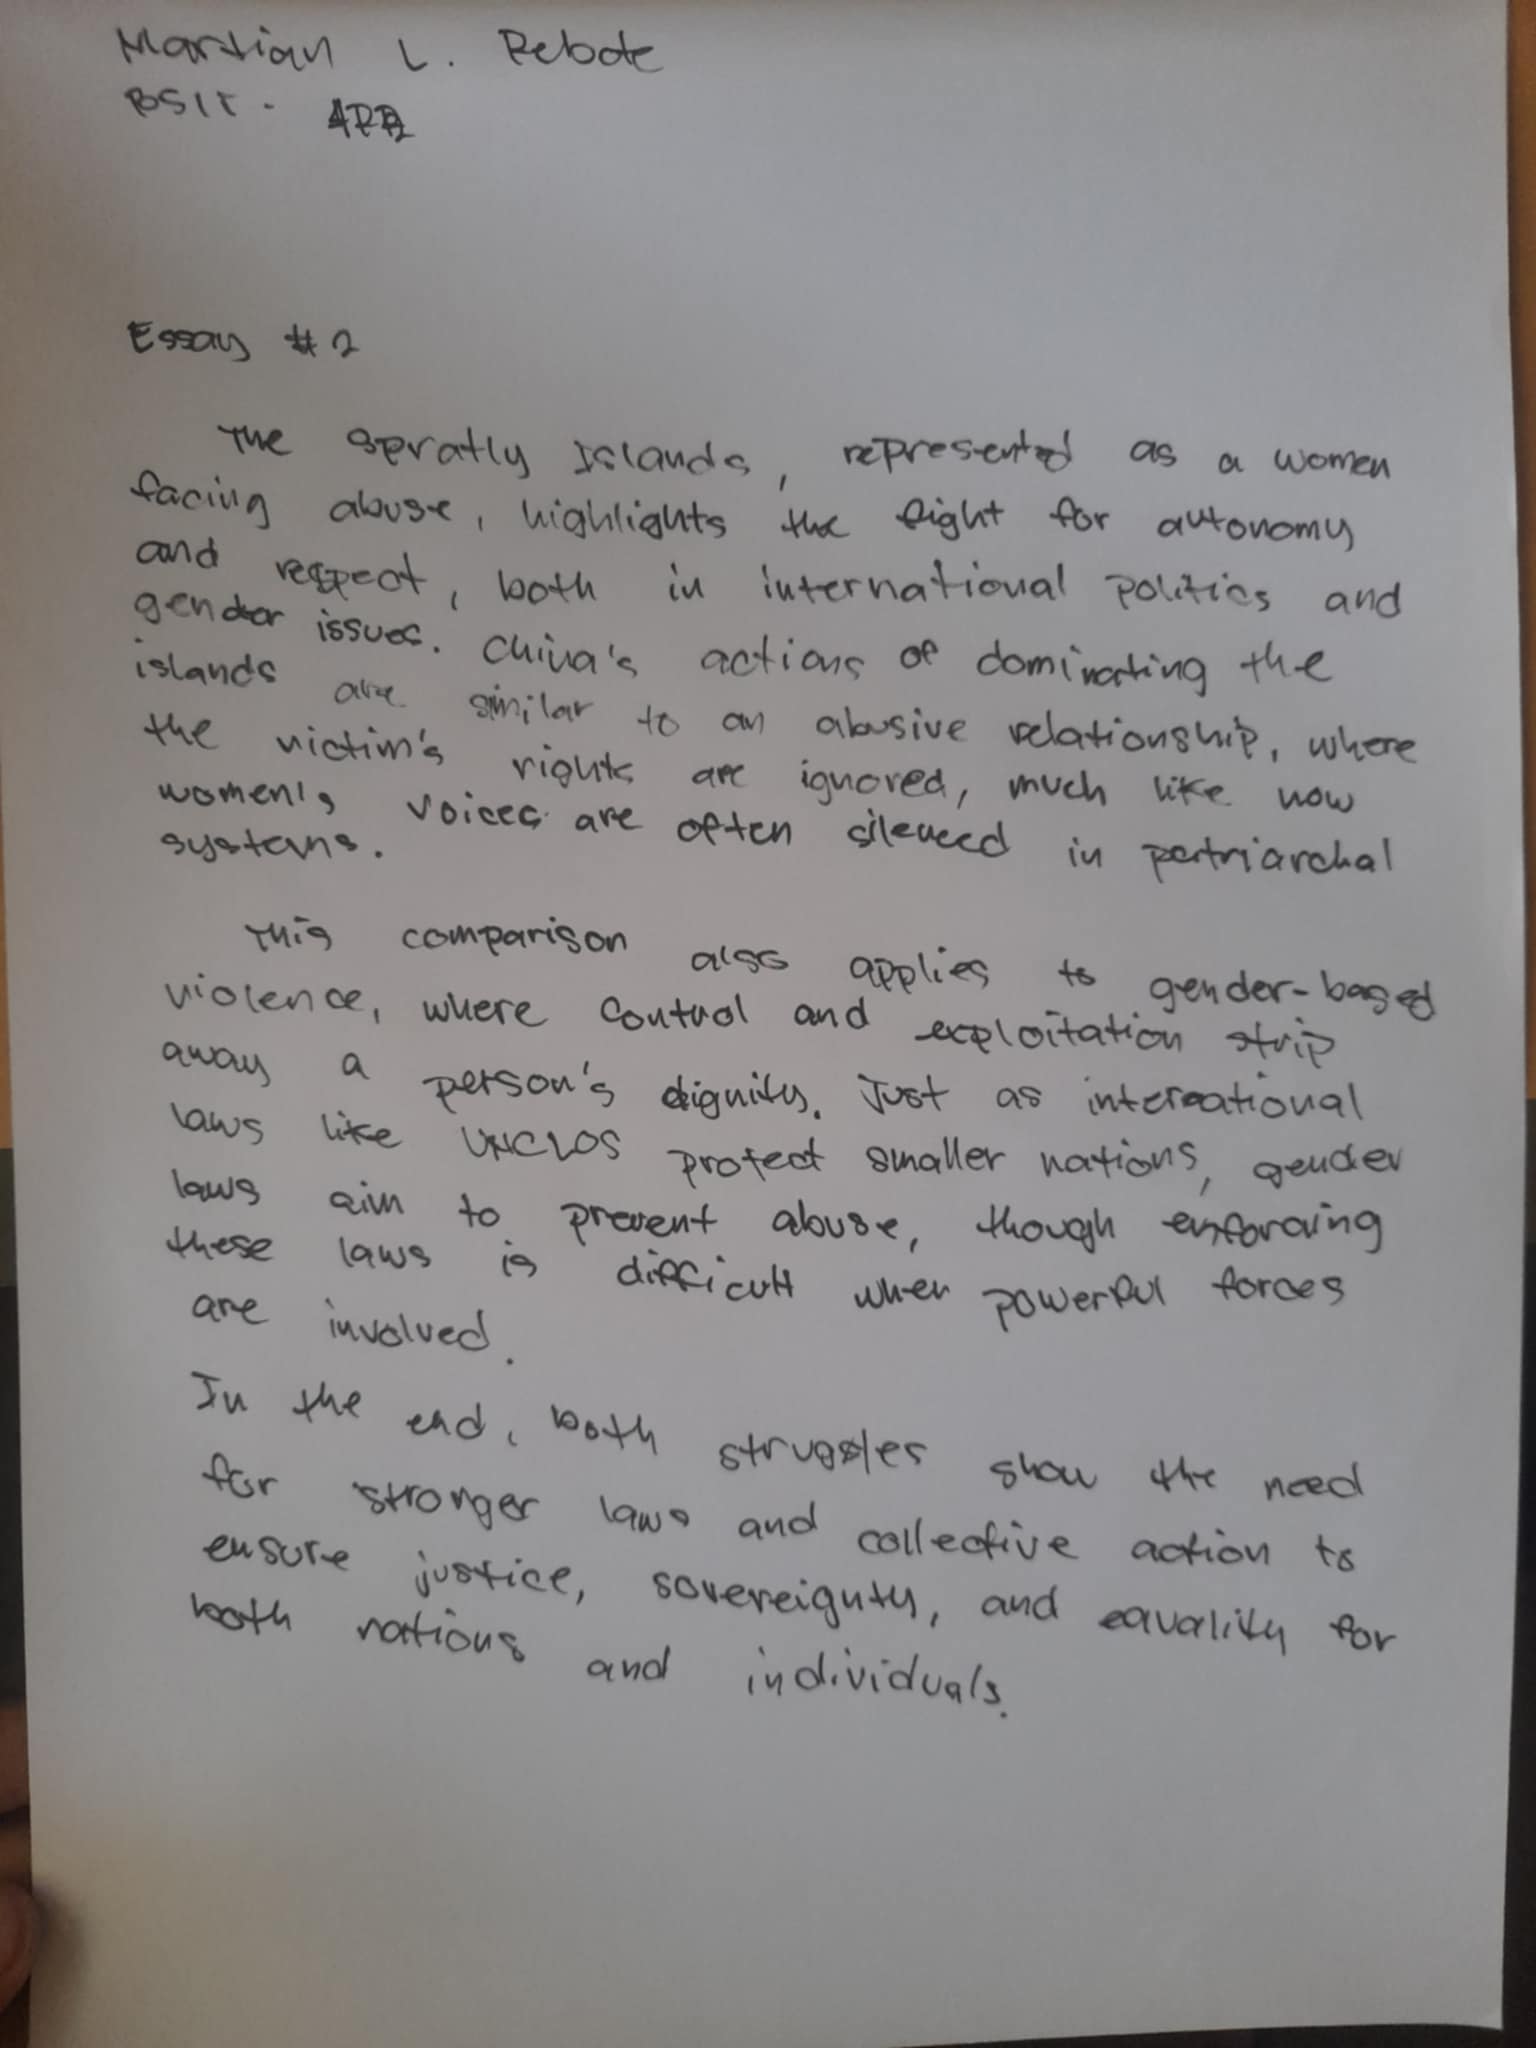 Martian L. Rebote
BSIT -
Essay #2
The Spratly Islands, represented as a women
facing abuse, highlights the fight for autonomy
and respect, both in international politics and
gender issues. China's actions of dominating the
islands are similar to an abusive relationship, where
the victim's rights are ignored, much like how
women's voices are often silenced in patriarchal
systems.
This comparison also applies to gender-based
violence, where control and exploitation strip
away a person's dignity. Just as international
laws like UNCLOS protect smaller nations, gender
laws aim to prevent abuse, though enforcing
these laws is difficult when powerful forces
are involved.
In the end, both struggles show the need
for stronger laws and collective action to
ensure justice, sovereignty, and equality for
both nations and individuals.